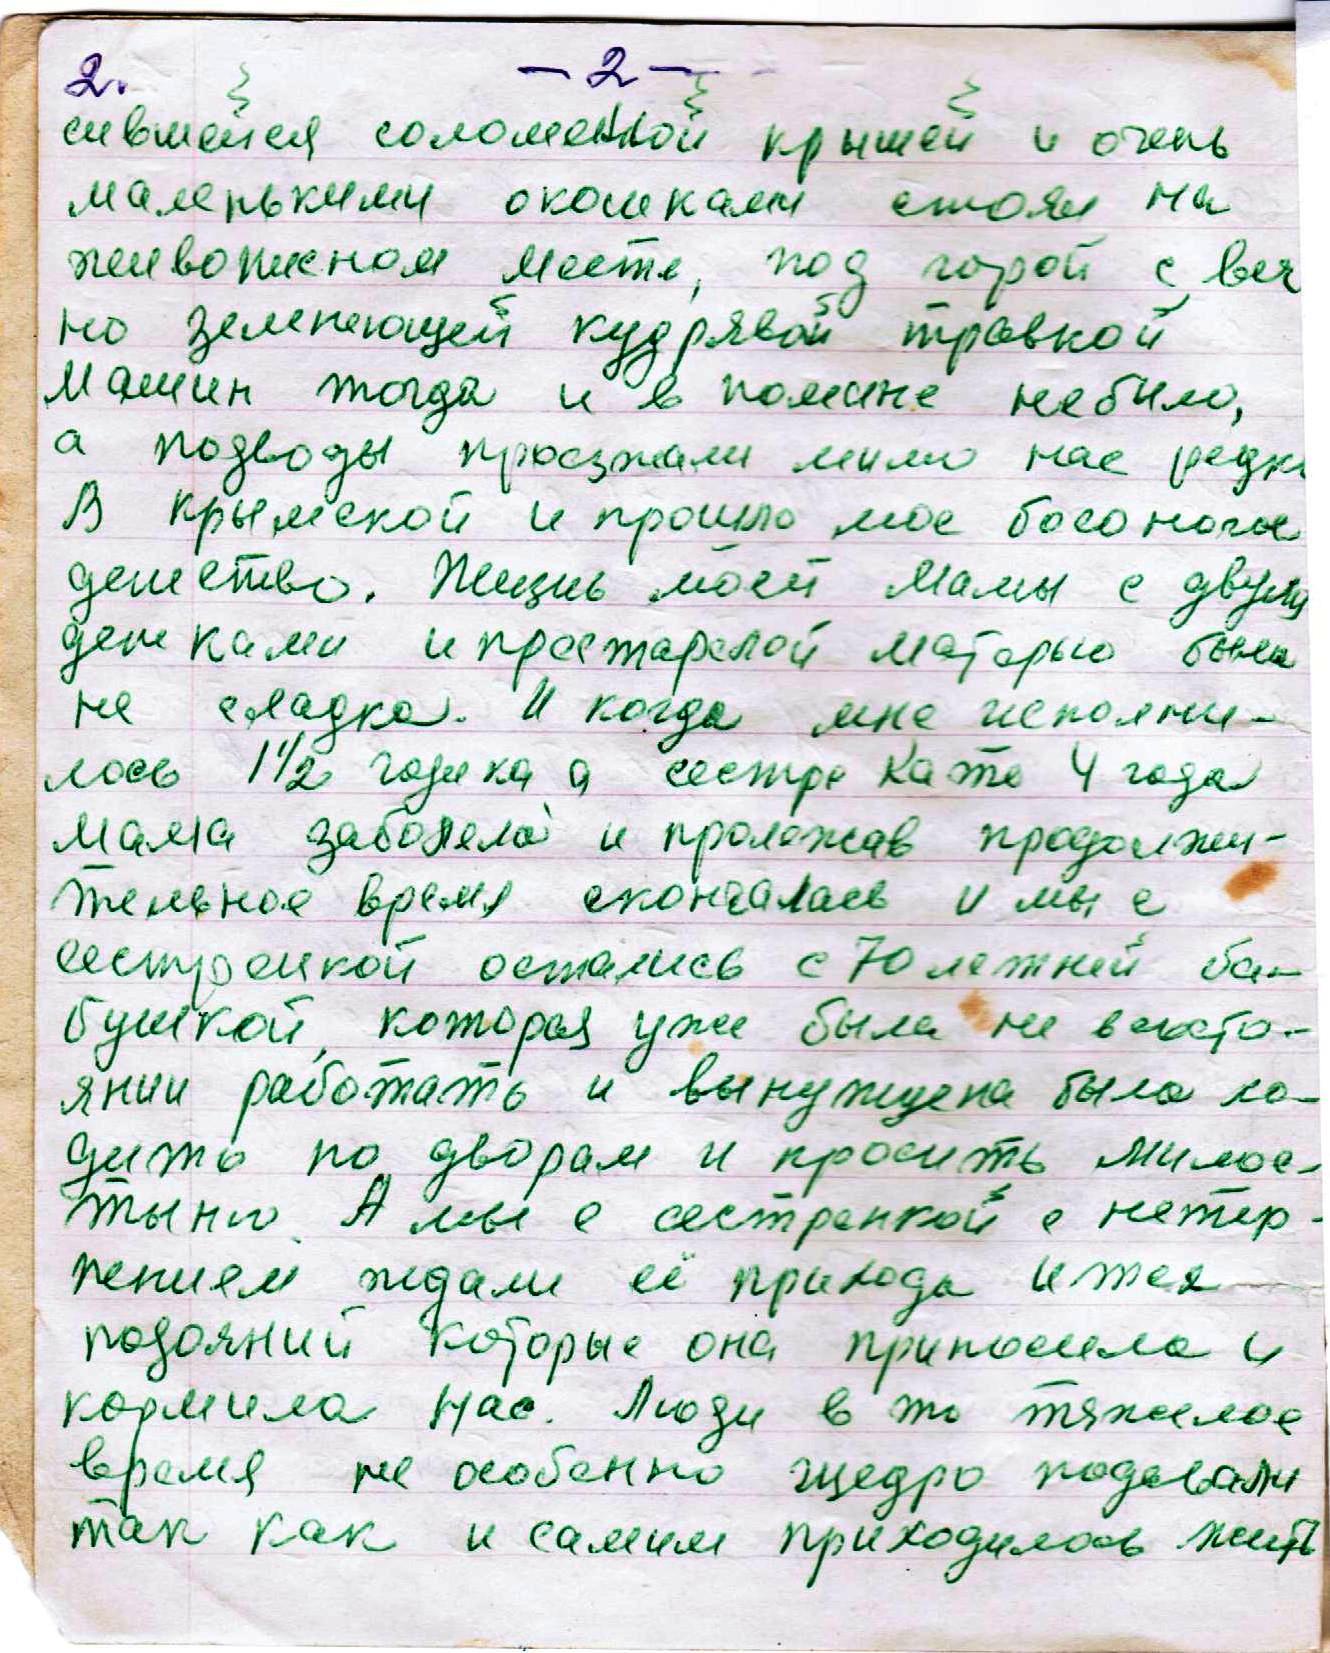 2. – 2 –
сившейся соломенной крышей и очень
маленькими окошками стоял на
живописном месте, под горой с веч
но зеленеющей кудрявой травкой
Машин тогда и в помине небыло,
а подводы проезжали мимо нас редко
В крымской и прошло мое босоногое
детство. Жизнь моей Мамы с двумя
детками и престарелой матерью была
не сладка. И когда мне исполни-
лось 1 1/2 годика а сестре Кате 4 года
Мама заболела и пролежав продолжи-
тельное время скончалась и мы с
сестренкой остались с 70 летней ба-
бушкой, которая уже была не в состо-
янии работать и вынуждена была хо-
дить по дворам и просить милос-
тыню. А мы с сестренкой с нетер-
пением ждали её прихода и тех
подаяний которые она приносила и
кормила нас. Люди в то тяжелое
время не особенно щедро подавали
так как и самим приходилось жить